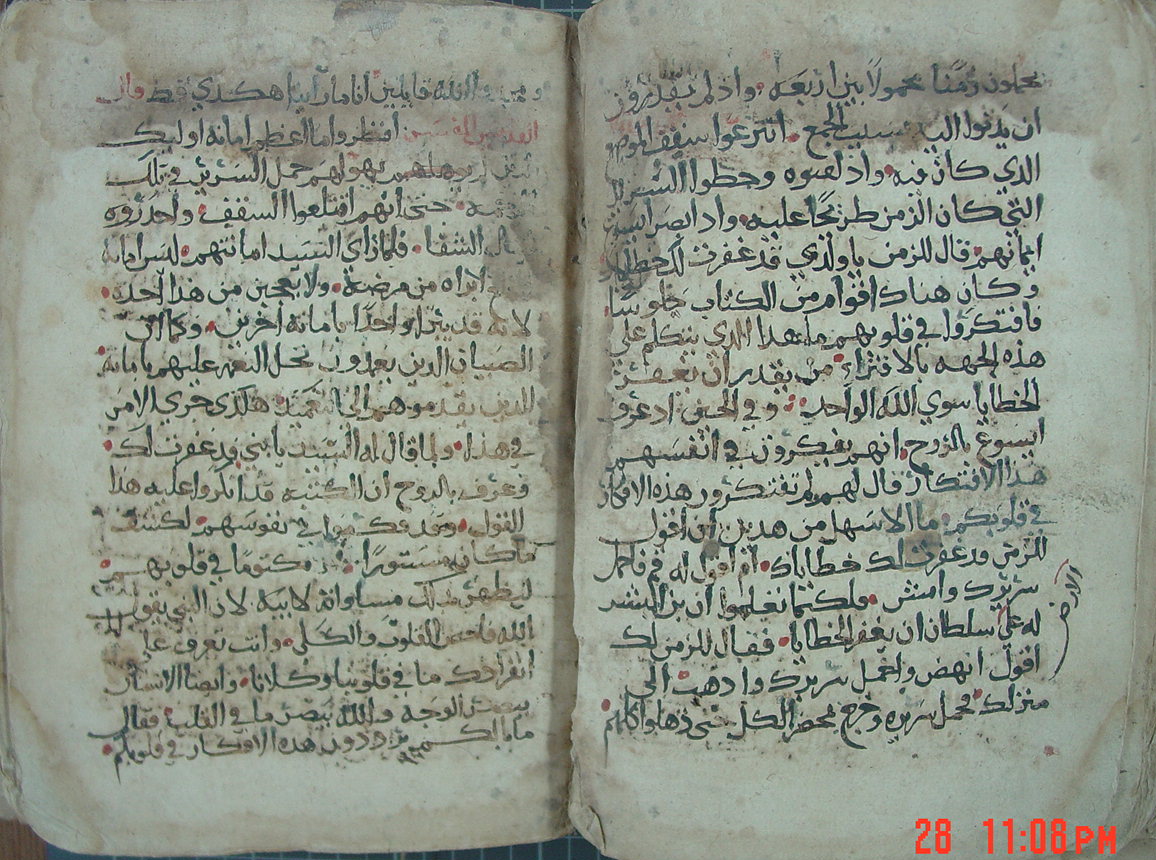 يحملون زمنا محمولا بين اربعه • واذ لم يقدرون
ان يدنوا اليه بسبب الجمع • انتزعوا سقف الموضع
الذي كان فيه • واذ نقبوه وحطوا السرير
التي كان الزمن طريحا عليه • واذ ابصر ايسوع
ايمانهم • قال للزمن ياولدي قد غفرت لك خطاياك
وكان هناك اقوام من الكتاب جلوسا •
فافتكروا في قلوبهم • ما هذا الذي يتكلم على
هذه الجهه بالافتراء • من يقدر ان يغفر
الخطايا سوي الله الواحد • وفي الحين اذ عرف
ايسوع بالروح • انهم يفكرون في انفسهم
هذا الافتكار قال لهم لم تفتكرون هذه الافكار
في قلوبكم • ما الاسهل من هدين ان اقول
للزمن قد غفرت لك خطاياك • ام اقول له قم فاحمل
سريرك وامش • فلكيما تعلموا ان بن البشر
له على سلطان ان يغفر الخطايا • فقال للزمن لك
الارض
اقول انهض واحمل سريرك واذهب الى
منزلك • فحمل سريره وخرج بمحضر الكل حتى ذهلوا كلهم •
الله قايلين اننا ما راينا هكذي قط قال
انظروا ما اعظم امانة اوليك
لم يهولهم حمل السرير في تلك
حتى انهم اقتلعوا السقف • واحدروه
الشفا • فلما راى السيد امانتهم • ليس امانة
ابراه من مرضه • ولا تعجبن من هذا الحده •
لانه قد يبرا واحدا بامانة اخرين • وكما ان
الصبيان الذين يعمدون تحل النعمه عليهم بامانة
الدين يقدموهم الى المعموديه • هكذي جري الامر
في هذا • ولما قال له السيد يابني قد غفرت لك •
وعرف بالروح ان الكتبه قد انكروا عليه هذا
القول • في نفوسهم • لكشف
ما كان مستورا • مكتوما في قلوبهم •
ليظهر بذلك مساواته لابيه لان النبي يقول
الله فاحص القلوب والكلى • وانت تعرف على
انفرادك ما في قلوبنا وكلانا • وايضا الانسان
يبصر الوجه والله يبصر ما في القلب • فقال
ما بالكم ترددون هده الافكار في قلوبكم •
28 11:08PM